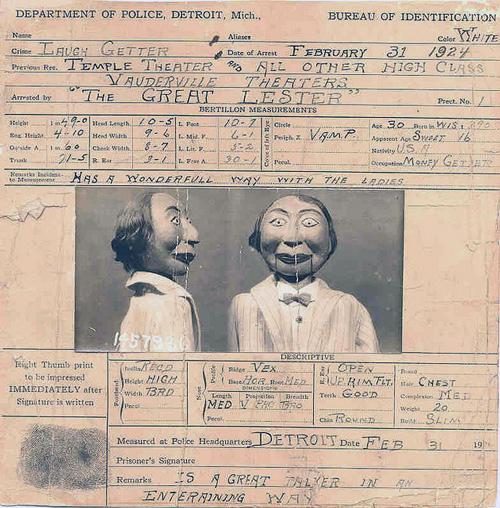 DEPARTMENT OF POLICE, DETROIT, Mich., BUREAU OF IDENTIFICATION
Name Aliases Color WHITE
Crime LAUGH GETTER Date of Arrest FEBRUARY 31 1924
Previous Rec. TEMPLE THEATER AND ALL OTHER HIGH CLASS
VAUDERVILLE THEATERS
Arrested by "THE GREAT LESTER" Prect. No. 1
BERTILLON MEASUREMENTS
Height 1 m 49-0 Head Length 10-5 L. Foot 10-7 Circle Age 30 Born in WIS
Eng. Height 4-10 Head Width 9-6 L. Mid. F. 6-1 Periph. Z VAMP. Apparent Age SWEET 16
Outside A. 1 m 60 Cheek Width 8-7 L. Lit. F. 5-2 Nativity U.S.A
Trunk 71-5 R. Ear 3-1 L. Fore A. 30-1 Pecul. Occupation MONEY GETTER
Remarks Incident to Measurement HAS A WONDERFULL WAY WITH THE LADIES
DESCRIPTIVE
Right Thumb print
to be impressed
IMMEDIATELY after
Signature is written
Forehead Inclin. RECD Nose Profile Ridge VEX R. Ear OPEN Beard
Height HIGH Base HOR Root MED UP. RIM FLT. Hair CHEST
Width BRD DIMENSIONS Teeth GOOD Complexion MED
Length Projection Breadth Weight 20
Pecul. MED V PRO BRO Chin ROUND Build SLIM
Pecul.
Measured at Police Headquarters DETROIT Date FEB 31 19
Prisoner's Signature
Remarks IS A GREAT TALKER IN AN
ENTERAINING WAY